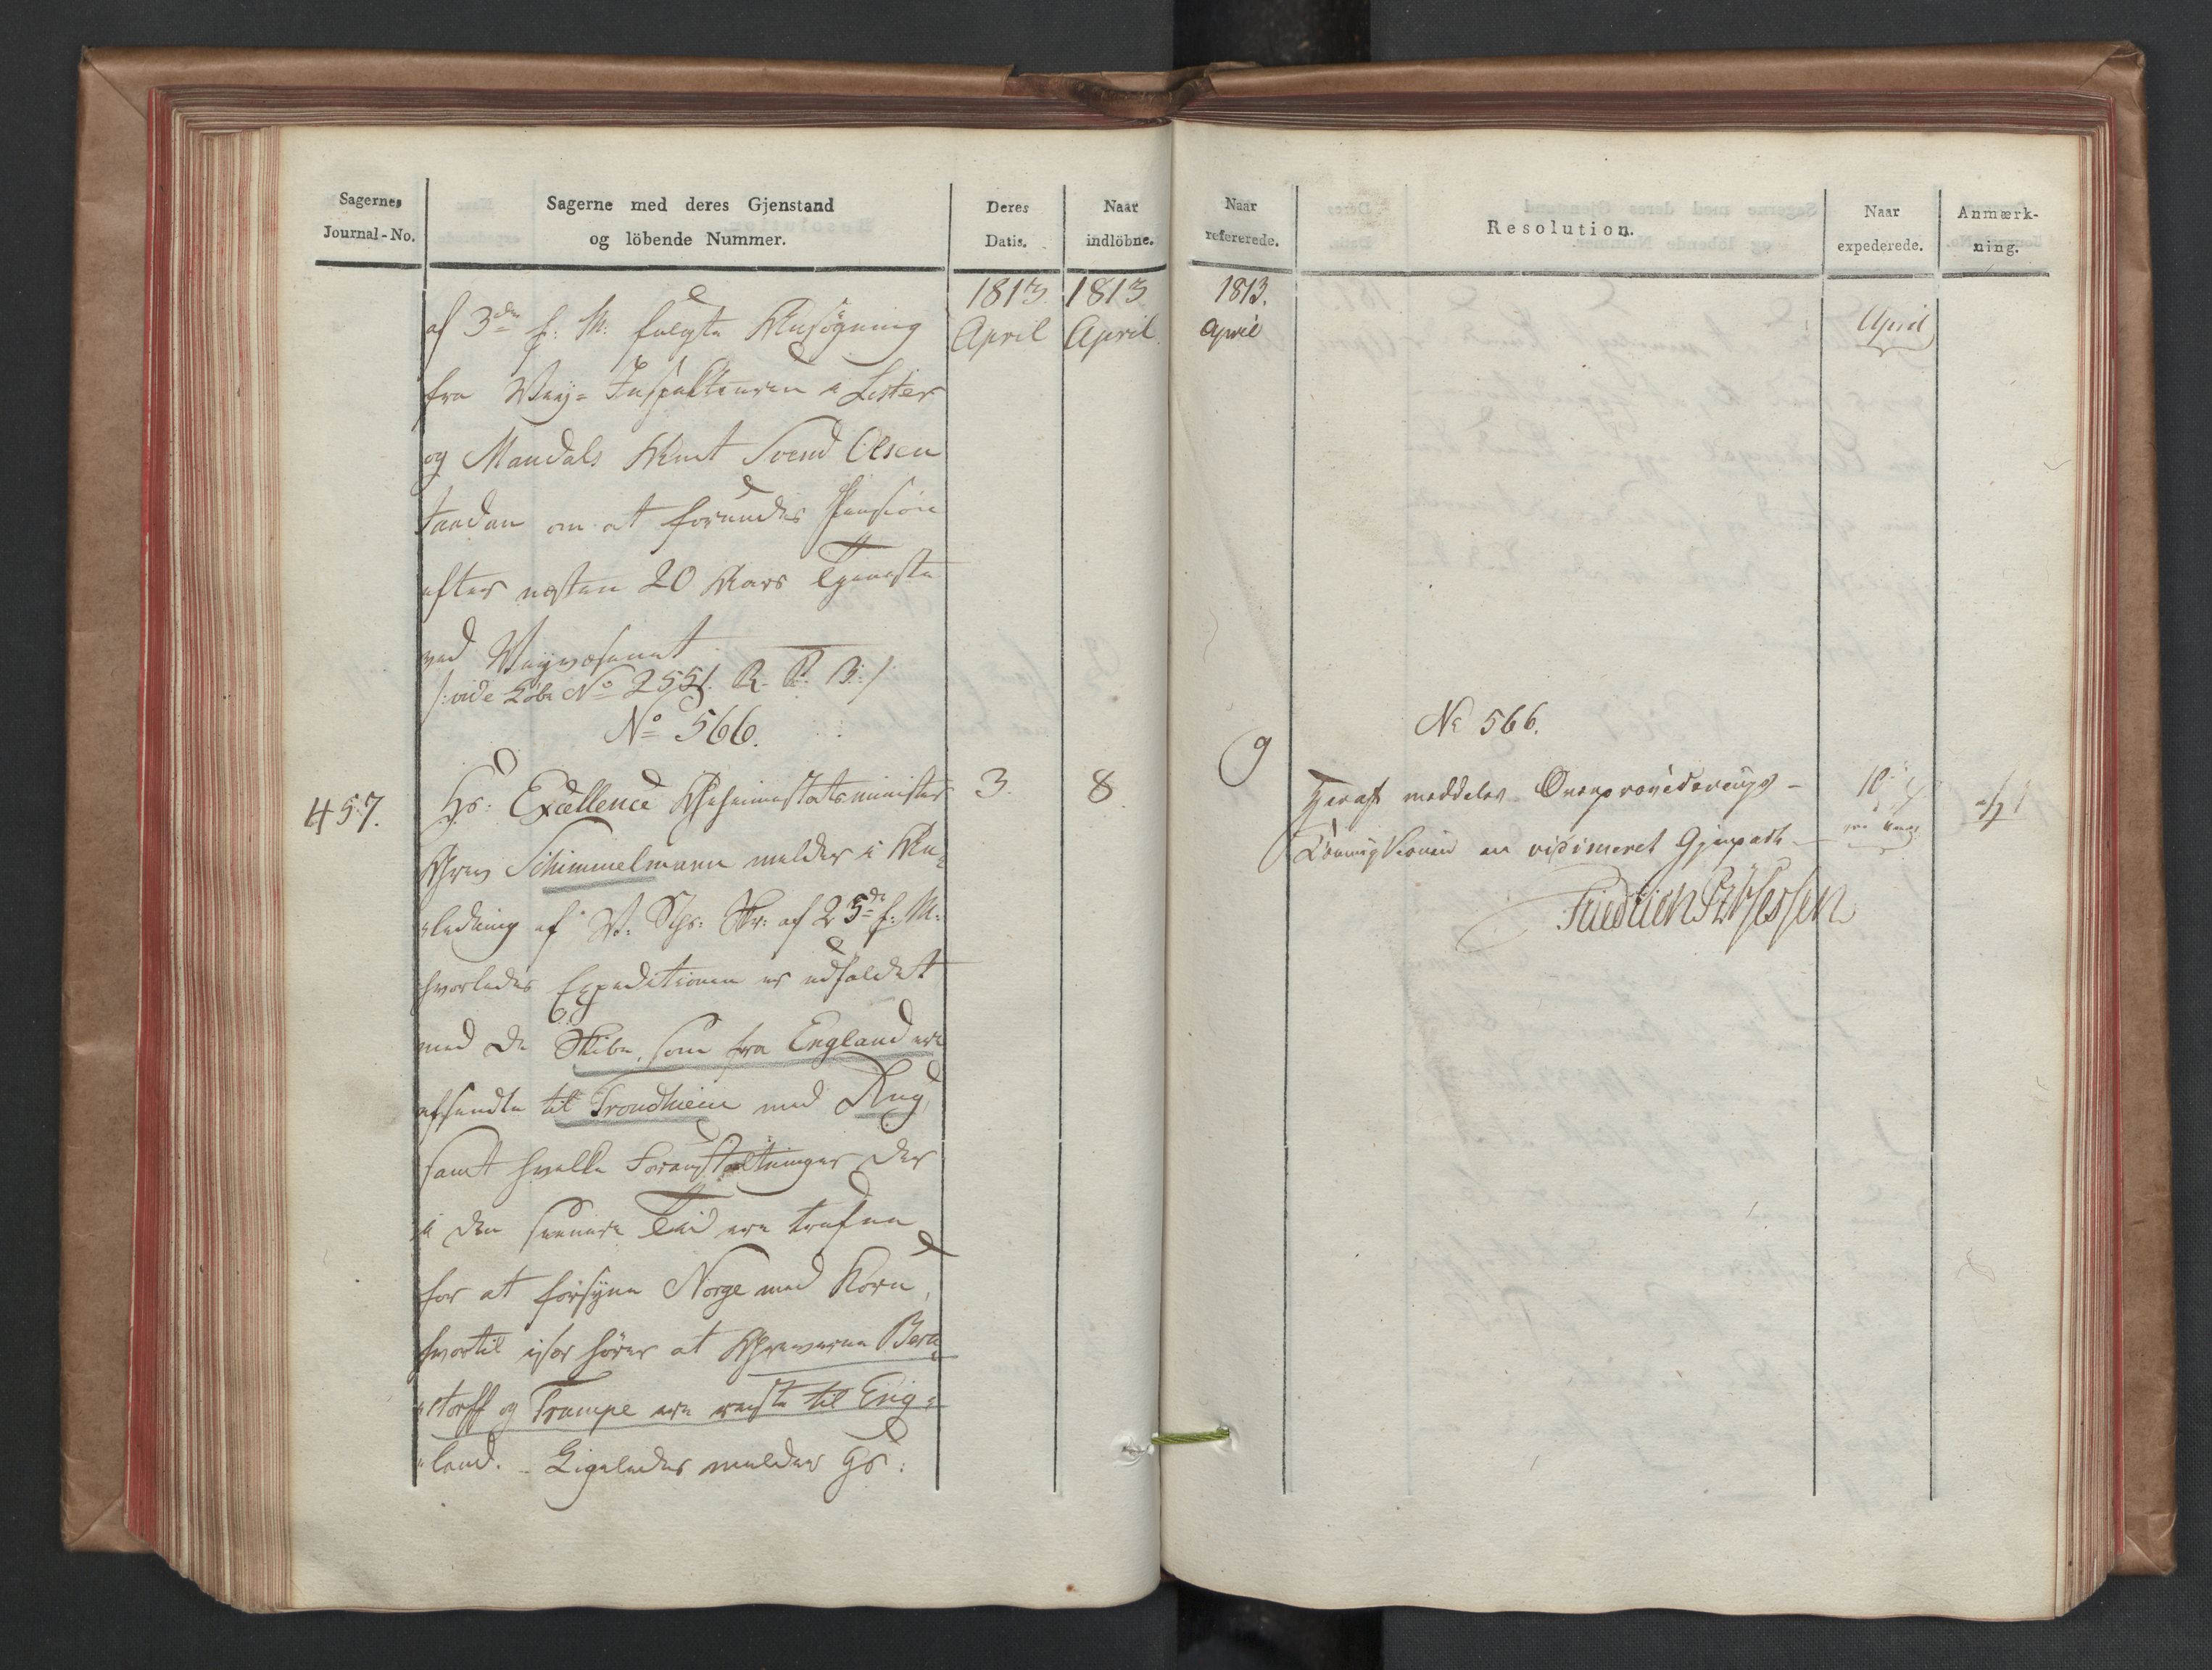 Sagernes
Journal-No.
Sagerne med deres Gjenstand
og löbende Nummer.
Deres
Datis.
Naar
indlöbne.
1813. 1813
April April
af 3die f: M: fulgte Ansögning
fra Vey-Inspekteuren i Lister
og Mandals Amt Svend Olsen
Faadan om at forundes Pension
efter næsten 20 Aars Tjeneste
ved Veyvæsenet
/:vide Löbe No 2551. R. P. B:/
No 566.
457.
Hs: Excellence Geheimestatsminister 3. 8.
Grev Schimmelmann melder i An-
-ledning af V. Skr: af 25de f: M:
hvorledes Expeditionen er udfaldet
med de Skibe, som fra England ere
afsendte til Trondhiem med Rug,
samt hvilke Foranstaltninger der
i den senere Tid ere trufne
for at forsyne Norge med Korn,
hvortil især hörer at Greverne Bern-
-storff og Trampe ere reiste til Eng-
-land. - Ligeledes melder Hs:
Naar
refererede.
Resolution.
Naar
expederede.
Anmærk-
ning.
1813.
April
April
No 566.
9
Heraf meddeles Overproviderings-
Commissionen en vidimeret Gjenpart.
10
Friedrich Pz Hessen